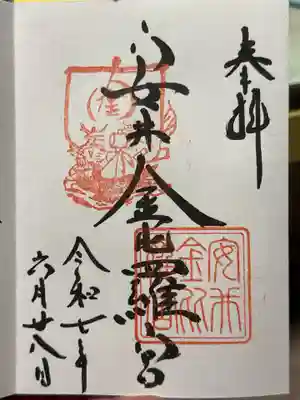 奉拝
安井金毘羅宮
令和七年
六月廿八日
安井金比羅宮